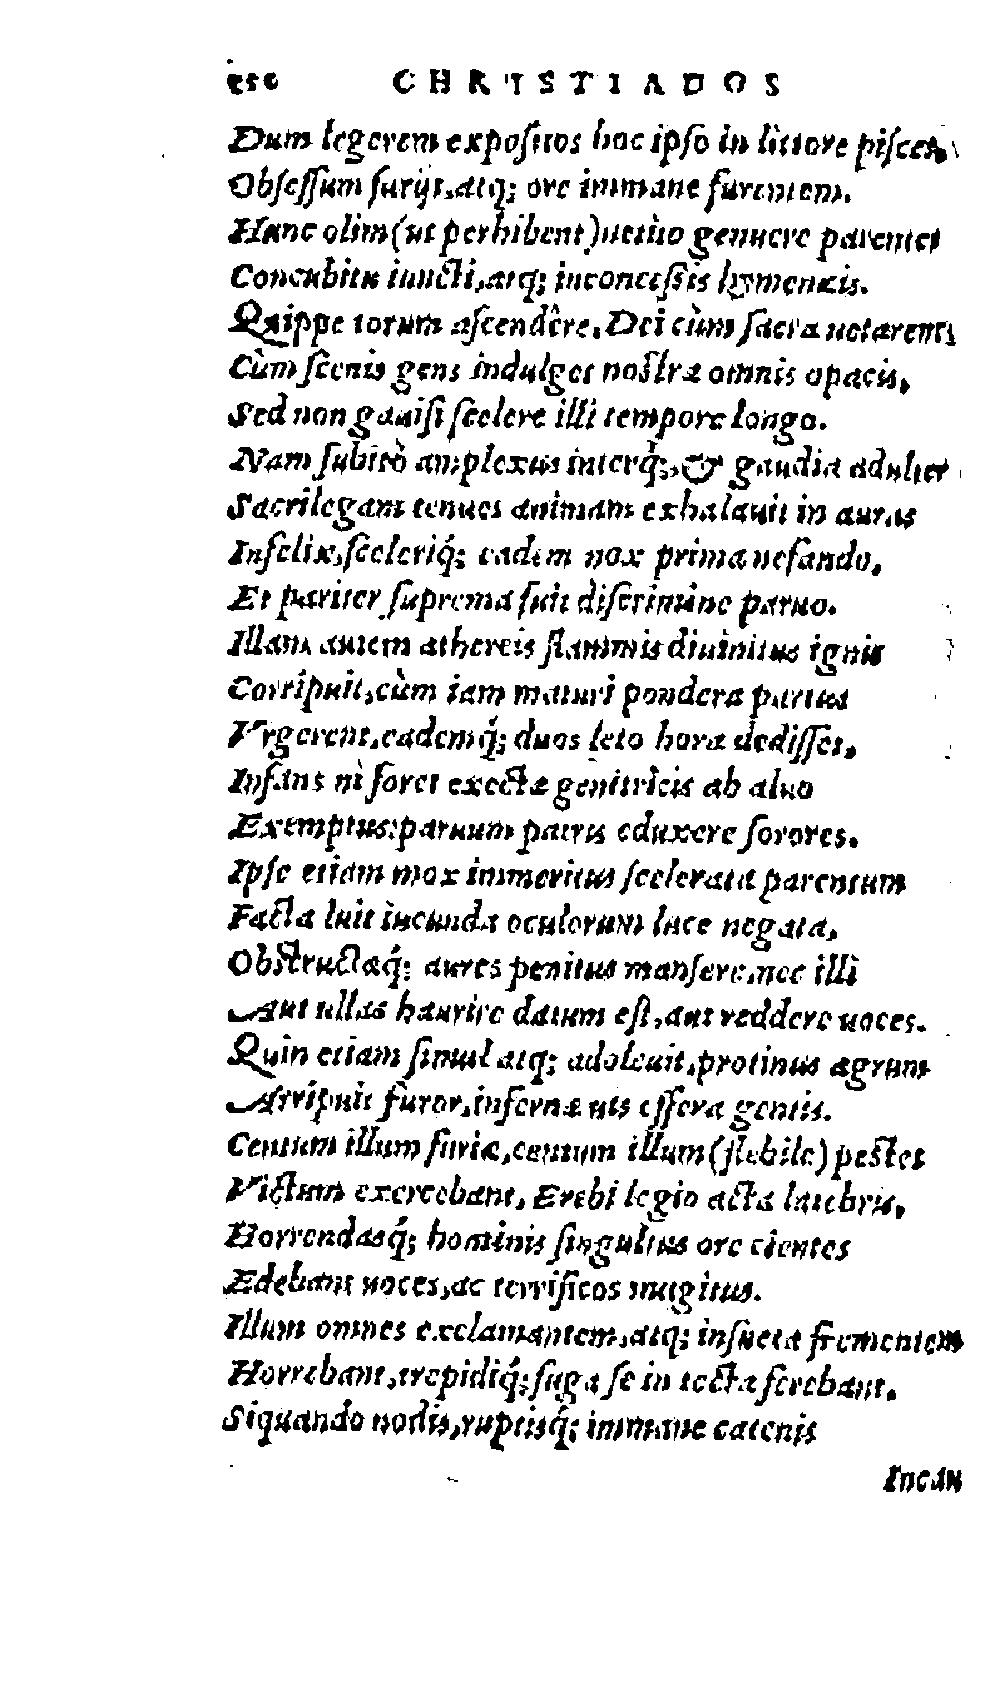 150 CHRISTIADOS
Dum legerem expositos hoc ipso in littore pisces,
Obsessum furijs, atq; ore immane furentem.
Hunc olim (ut perhibent) uetito genuere parentes
Concubitu iuncti, atq; inconcessis hymenæis.
Quippe torum ascendêre, Dei cùm sacra uetarent,
Cùm scenis gens indulget nostra omnis opacis,
Sed non gauisi scelere illi tempore longo.
Nam subitò amplexus interq́;, & gaudia adulter
Sacrilegam tenues animam exhalauit in auras
Infelix, sceleriq́; eadem nox prima nefando,
Et pariter suprema fuit discrimine paruo.
Illam autem æthereis flammis diuinitus ignis
Corripuit, cùm iam maturi pondera partus
Vrgerent, eademq́; duos leto hora dedisset,
Infans nì foret exectæ genitricis ab aluo
Exemptus: paruum patris eduxere sorores.
Ipse etiam mox immeritus scelerata parentum
Facta luit iucunda oculorum luce negata,
Obstructæq́; aures penitus mansere, nec illi
Aut ullas haurire datum est, aut reddere uoces.
Quin etiam simul atq; adoleuit, protinus ægrum
Arripuit furor, infernæ uis effera gentis.
Centum illum furiæ, centum illum (flebile) pestes
Victum exercebant, Erebi legio acta latebris,
Horrendasq́; hominis singultus ore cientes
Edebant uoces, ac terrificos mugitus.
Illum omnes exclamantem, atq; insueta frementem
Horrebant, trepidiq́; fuga se in tecta ferebant.
Siquando nodis, ruptisq́; immane catenis
Incan